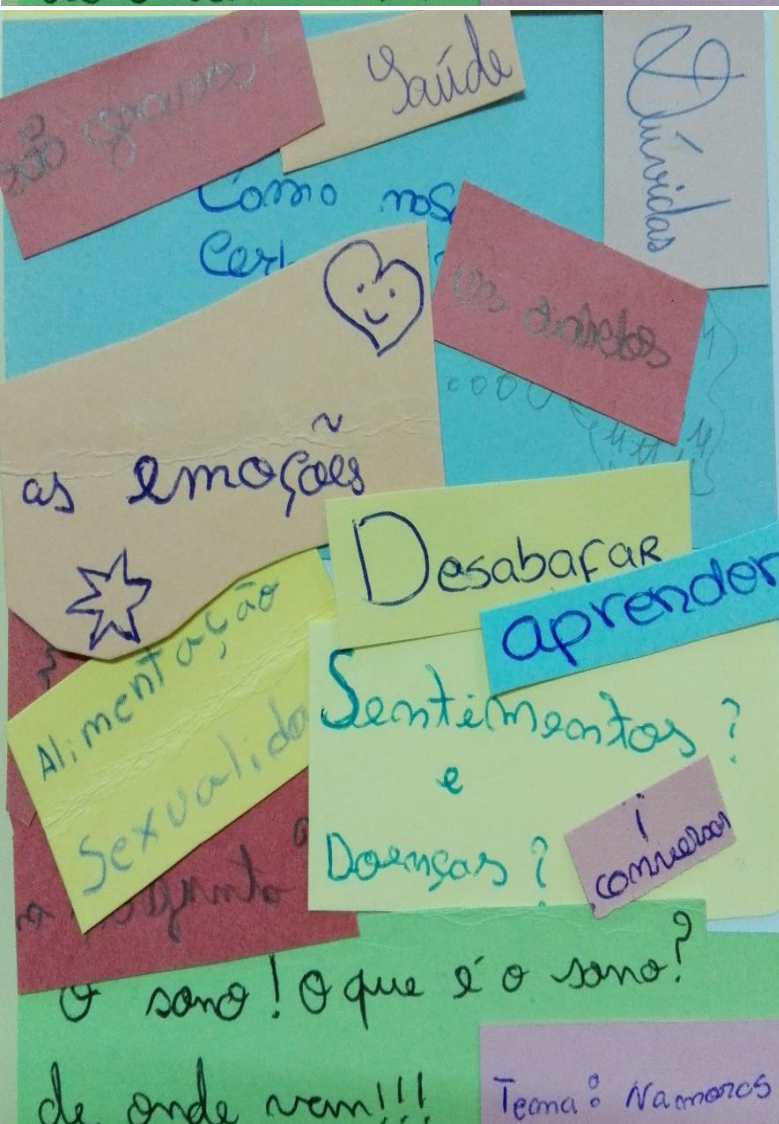 são graves?
Saúde
Dúvidas
Como nos
Os diabetes
as emoções
Desabafar
aprender
Alimentação
Sexualida
Sentimentos?
e
Doenças?
conversas
O sono! O que é o sono?
de onde vem!!!
Tema: Namoros